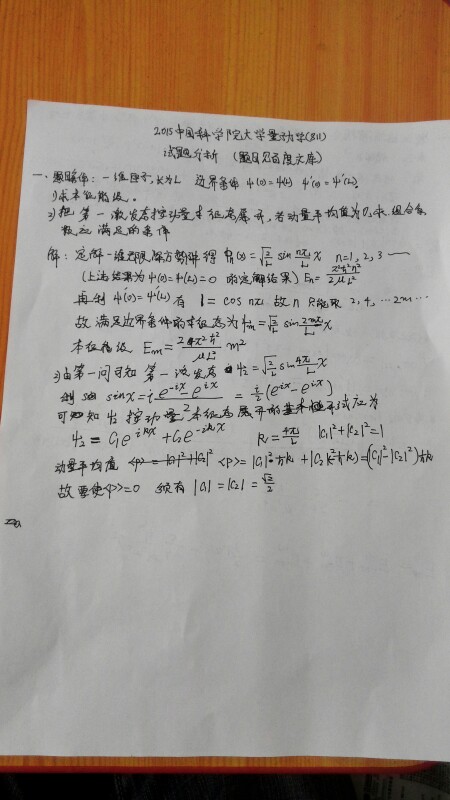 2015中国科学院大学量动学(811)
试题分析 (题目见百度文库)
一、题目条件: 一维粒子, 长为L 边界条件 ψ(0)=ψ(L) ψ'(0)=ψ'(L).
1)求本征能级.
2)把第一激发态按动量本征态展开, 若动量平均值为0. 求组合系
数应满足的条件
解: 定解一维无限深方势阱得 ψn(x)=√(2/L) sin (nπ/L) x n=1, 2, 3
(上述结果为ψ(0)=ψ(L)=0 的定解结果) En = π²ħ²n²/2μL²
再由 ψ'(0)=ψ'(L) 有 1 = cos nπ 故 n 只能取 2, 4, …2m…
故满足边界条件的本征态为 ψm=√(2/L) sin (2mπ/L) x
本征能级 Em = (2π²ħ²/μL²) m²
2)由第一问可知 第一激发态 ψ2=√(2/L) sin (4π/L) x
则 sin x = i (e^-ix − e^ix)/2 = i/2 (e^-ix − e^ix)
可知 ψ2 按动量本征态展开的基本模式应为
ψ2 = C1 e^ikx + C2 e^-ikx k = 4π/L |C1|²+|C2|²=1
动量平均值 <p> = |C1|²ħk + |C2|²(−ħk) = (|C1|²−|C2|²)ħk
故要使<p>=0 须有 |C1| = |C2| = √2/2